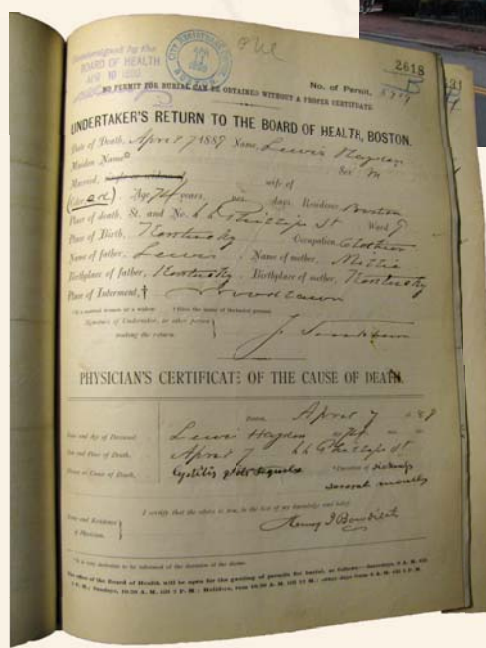 Countersigned by the
BOARD OF HEALTH
APR 10 1889
CITY REGISTRAR'S
APR
1889
BOSTON
2618
No. of Permit,
NO PERMIT FOR BURIAL CAN BE OBTAINED WITHOUT A PROPER CERTIFICATE
UNDERTAKER'S RETURN TO THE BOARD OF HEALTH, BOSTON.
Date of Death, April 7 1889 Name, Lewis Hayden
Maiden Name Sex M
Married, wife of
(Color ed.) Age 74 years, mos. days. Residence Boston
Place of death, St. and No. 66 Phillips St Ward 9
Place of Birth, Kentucky Occupation, Clothier
Name of father, Lewis Name of mother, Millie
Birthplace of father, Kentucky Birthplace of mother, Kentucky
Place of Interment,† Woodlawn
Signature of Undertaker, or other person
making the return.
PHYSICIAN'S CERTIFICATE OF THE CAUSE OF DEATH.
Boston, April 7 1889
Name and Age of Deceased, Lewis Hayden 74
Date and Place of Death, April 7 66 Phillips St
Disease or Cause of Death, Cystitis *Duration of Sickness
several months
I certify that the above is true, to the best of my knowledge and belief.
Name and Residence
of Physician. Henry I Bowditch
The office of the Board of Health will be open for the granting of permits for burial, as follows: